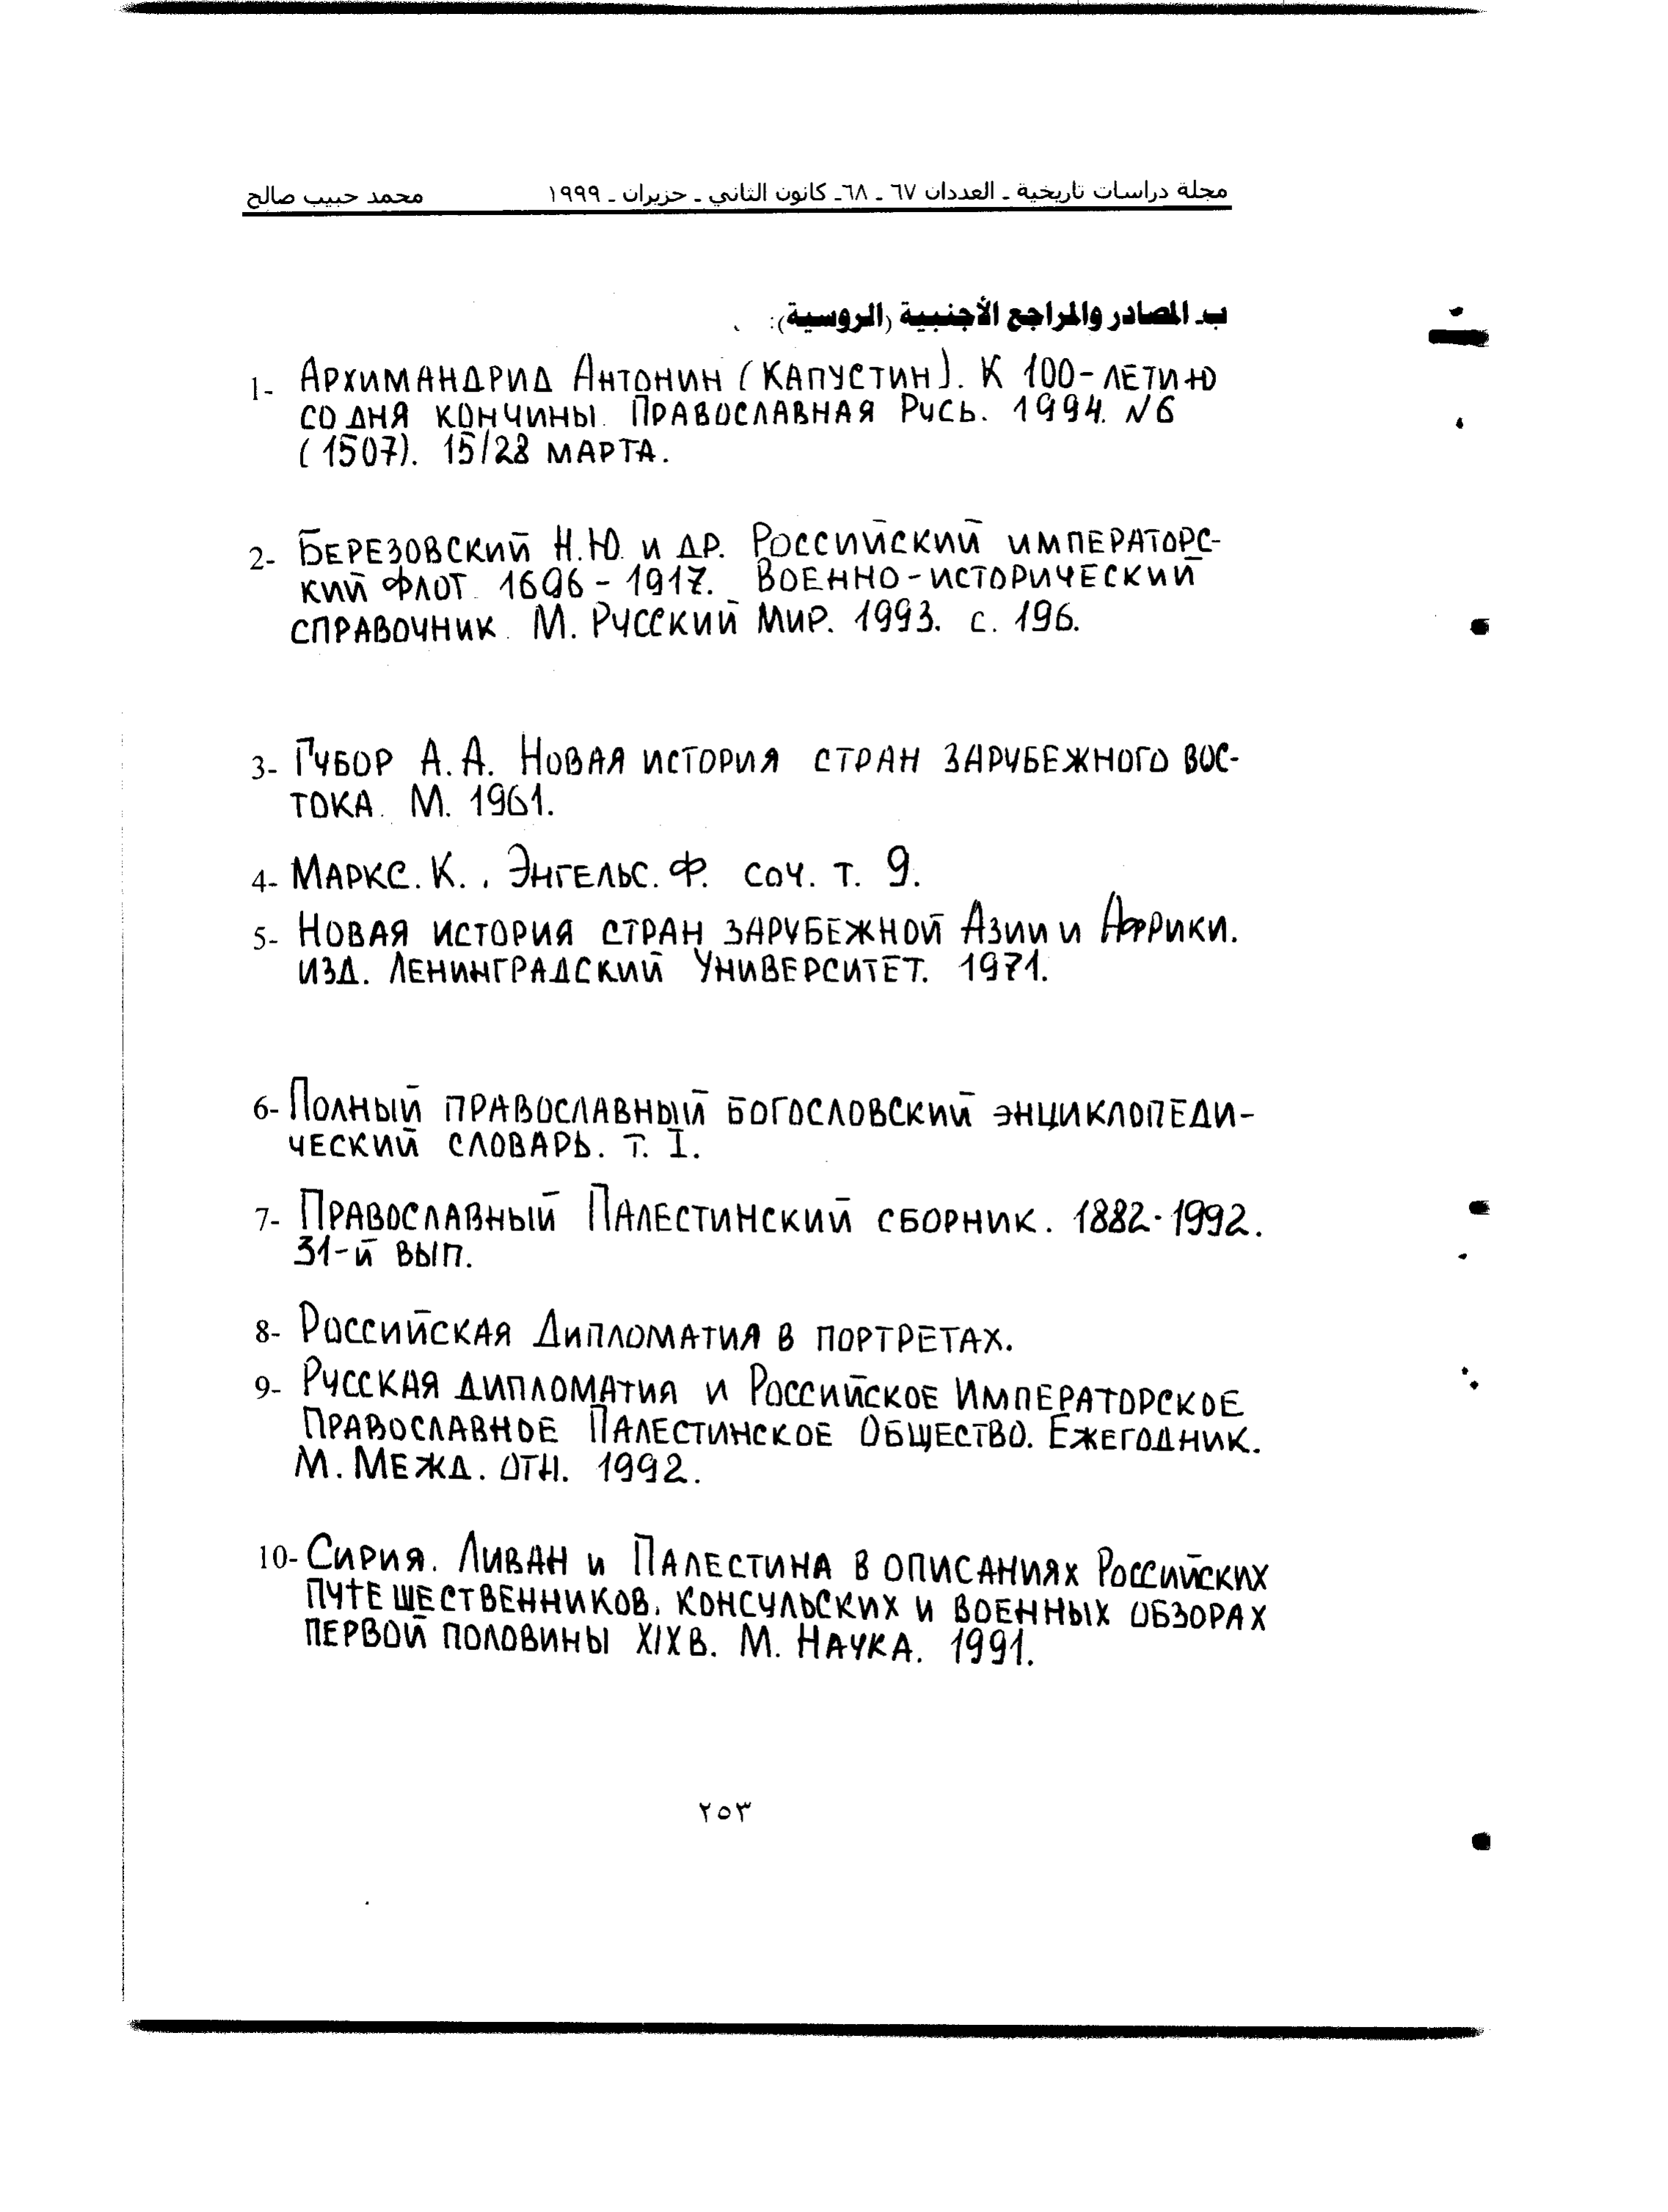 مجلة دراسات تاريخية ـ العددان ٦٧ ـ ٦٨ـ كانون الثاني ـ حزيران ـ ١٩٩٩ محمد حبيب صالح
ب‍ـ المصادر والمراجع الأجنبية (الروسية):
1- Архимандрид Антонин (Капустин). К 100-летию
со дня кончины. Православная Русь. 1994. N6
(1507). 15/28 марта.
2- Березовский Н.Ю. и др. Российский императорс-
кий флот. 1696-1917. Военно-исторический
справочник. М. Русский Мир. 1993. с. 196.
3- Губор А.А. Новая история стран зарубежного вос-
тока. М. 1961.
4- Маркс. К., Энгельс. Ф. соч. т. 9.
5- Новая история стран зарубежной Азии и Африки.
изд. Ленинградский Университет. 1971.
6- Полный православный богословский энциклопеди-
ческий словарь. т. I.
7- Православный Палестинский сборник. 1882-1992.
31-й вып.
8- Российская Дипломатия в портретах.
9- Русская дипломатия и Российское Императорское
Православное Палестинское Общество. Ежегодник.
М. Межд. отн. 1992.
10- Сирия. Ливан и Палестина в описаниях Российских
путешественников, консульских и военных обзорах
первой половины XIX в. М. Наука. 1991.
٢٥٣